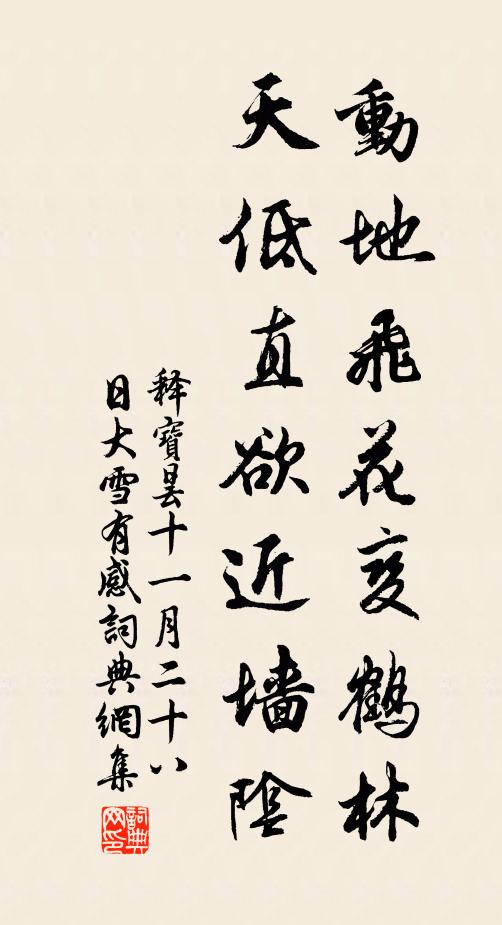 動地飛花变鶴林
天低直欲近墙陰
释寶曇十一月二十八
日大雪有感詞典網集
詞典
网印